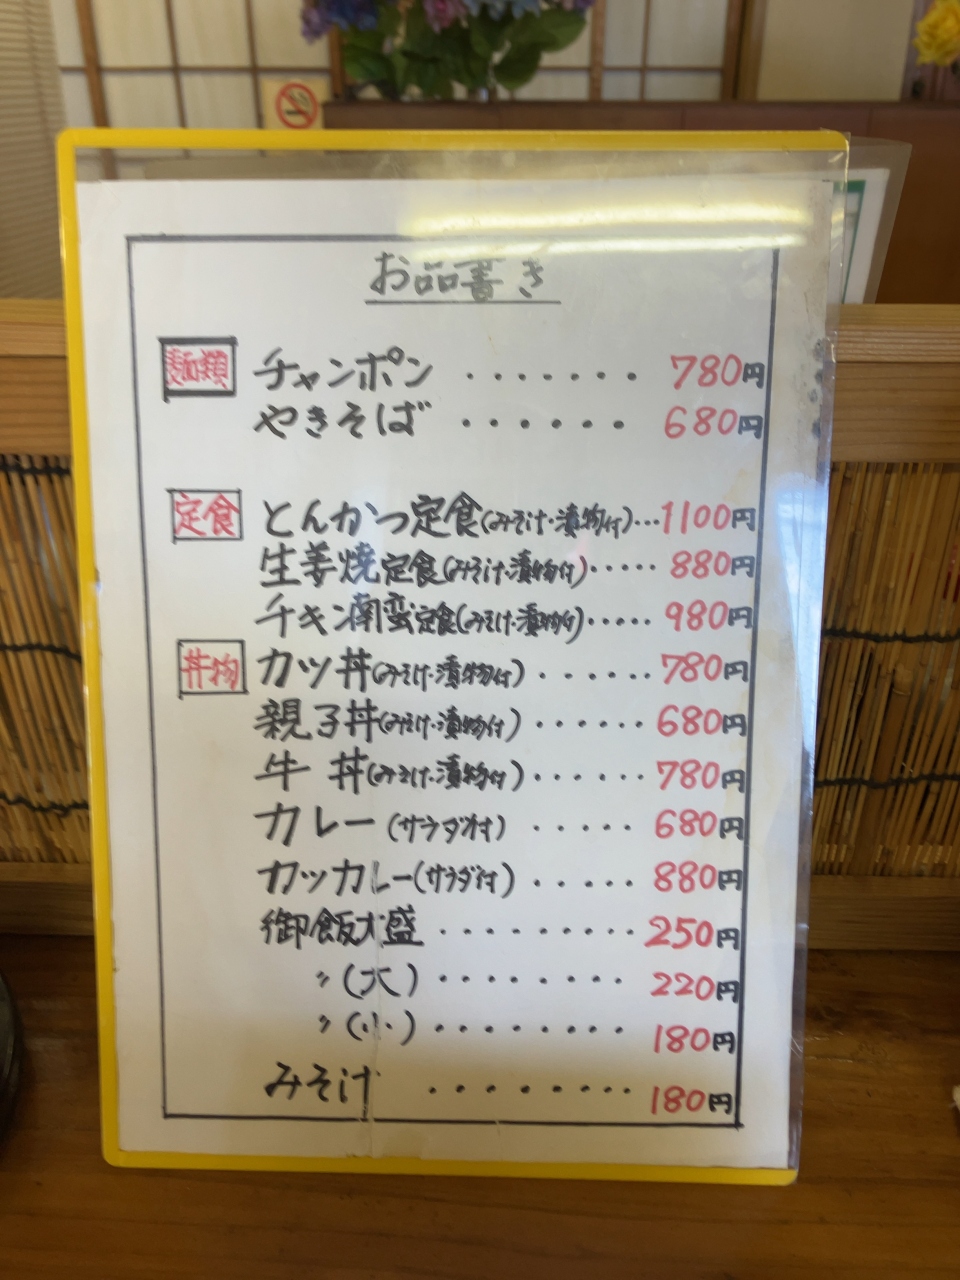 お品書き
麺類 チャンポン ・・・・・・・ 780円
やきそば ・・・・・・ 680円
定食 とんかつ定食(みそ汁・漬物付)・・・1100円
生姜焼定食(みそ汁・漬物付)・・・・・ 880円
チキン南蛮定食(みそ汁・漬物付)・・・・・ 980円
丼物 カツ丼(みそ汁・漬物付)・・・・・・ 780円
親子丼(みそ汁・漬物付)・・・・・・ 680円
牛 丼(みそ汁・漬物付)・・・・・・ 780円
カレー(サラダ付) ・・・・・ 680円
カツカレー(サラダ付)・・・・・ 880円
御飯大盛・・・・・・・・・ 250円
〃(大)・・・・・・・・ 220円
〃(小)・・・・・・・・・ 180円
みそ汁 ・・・・・・・・ 180円